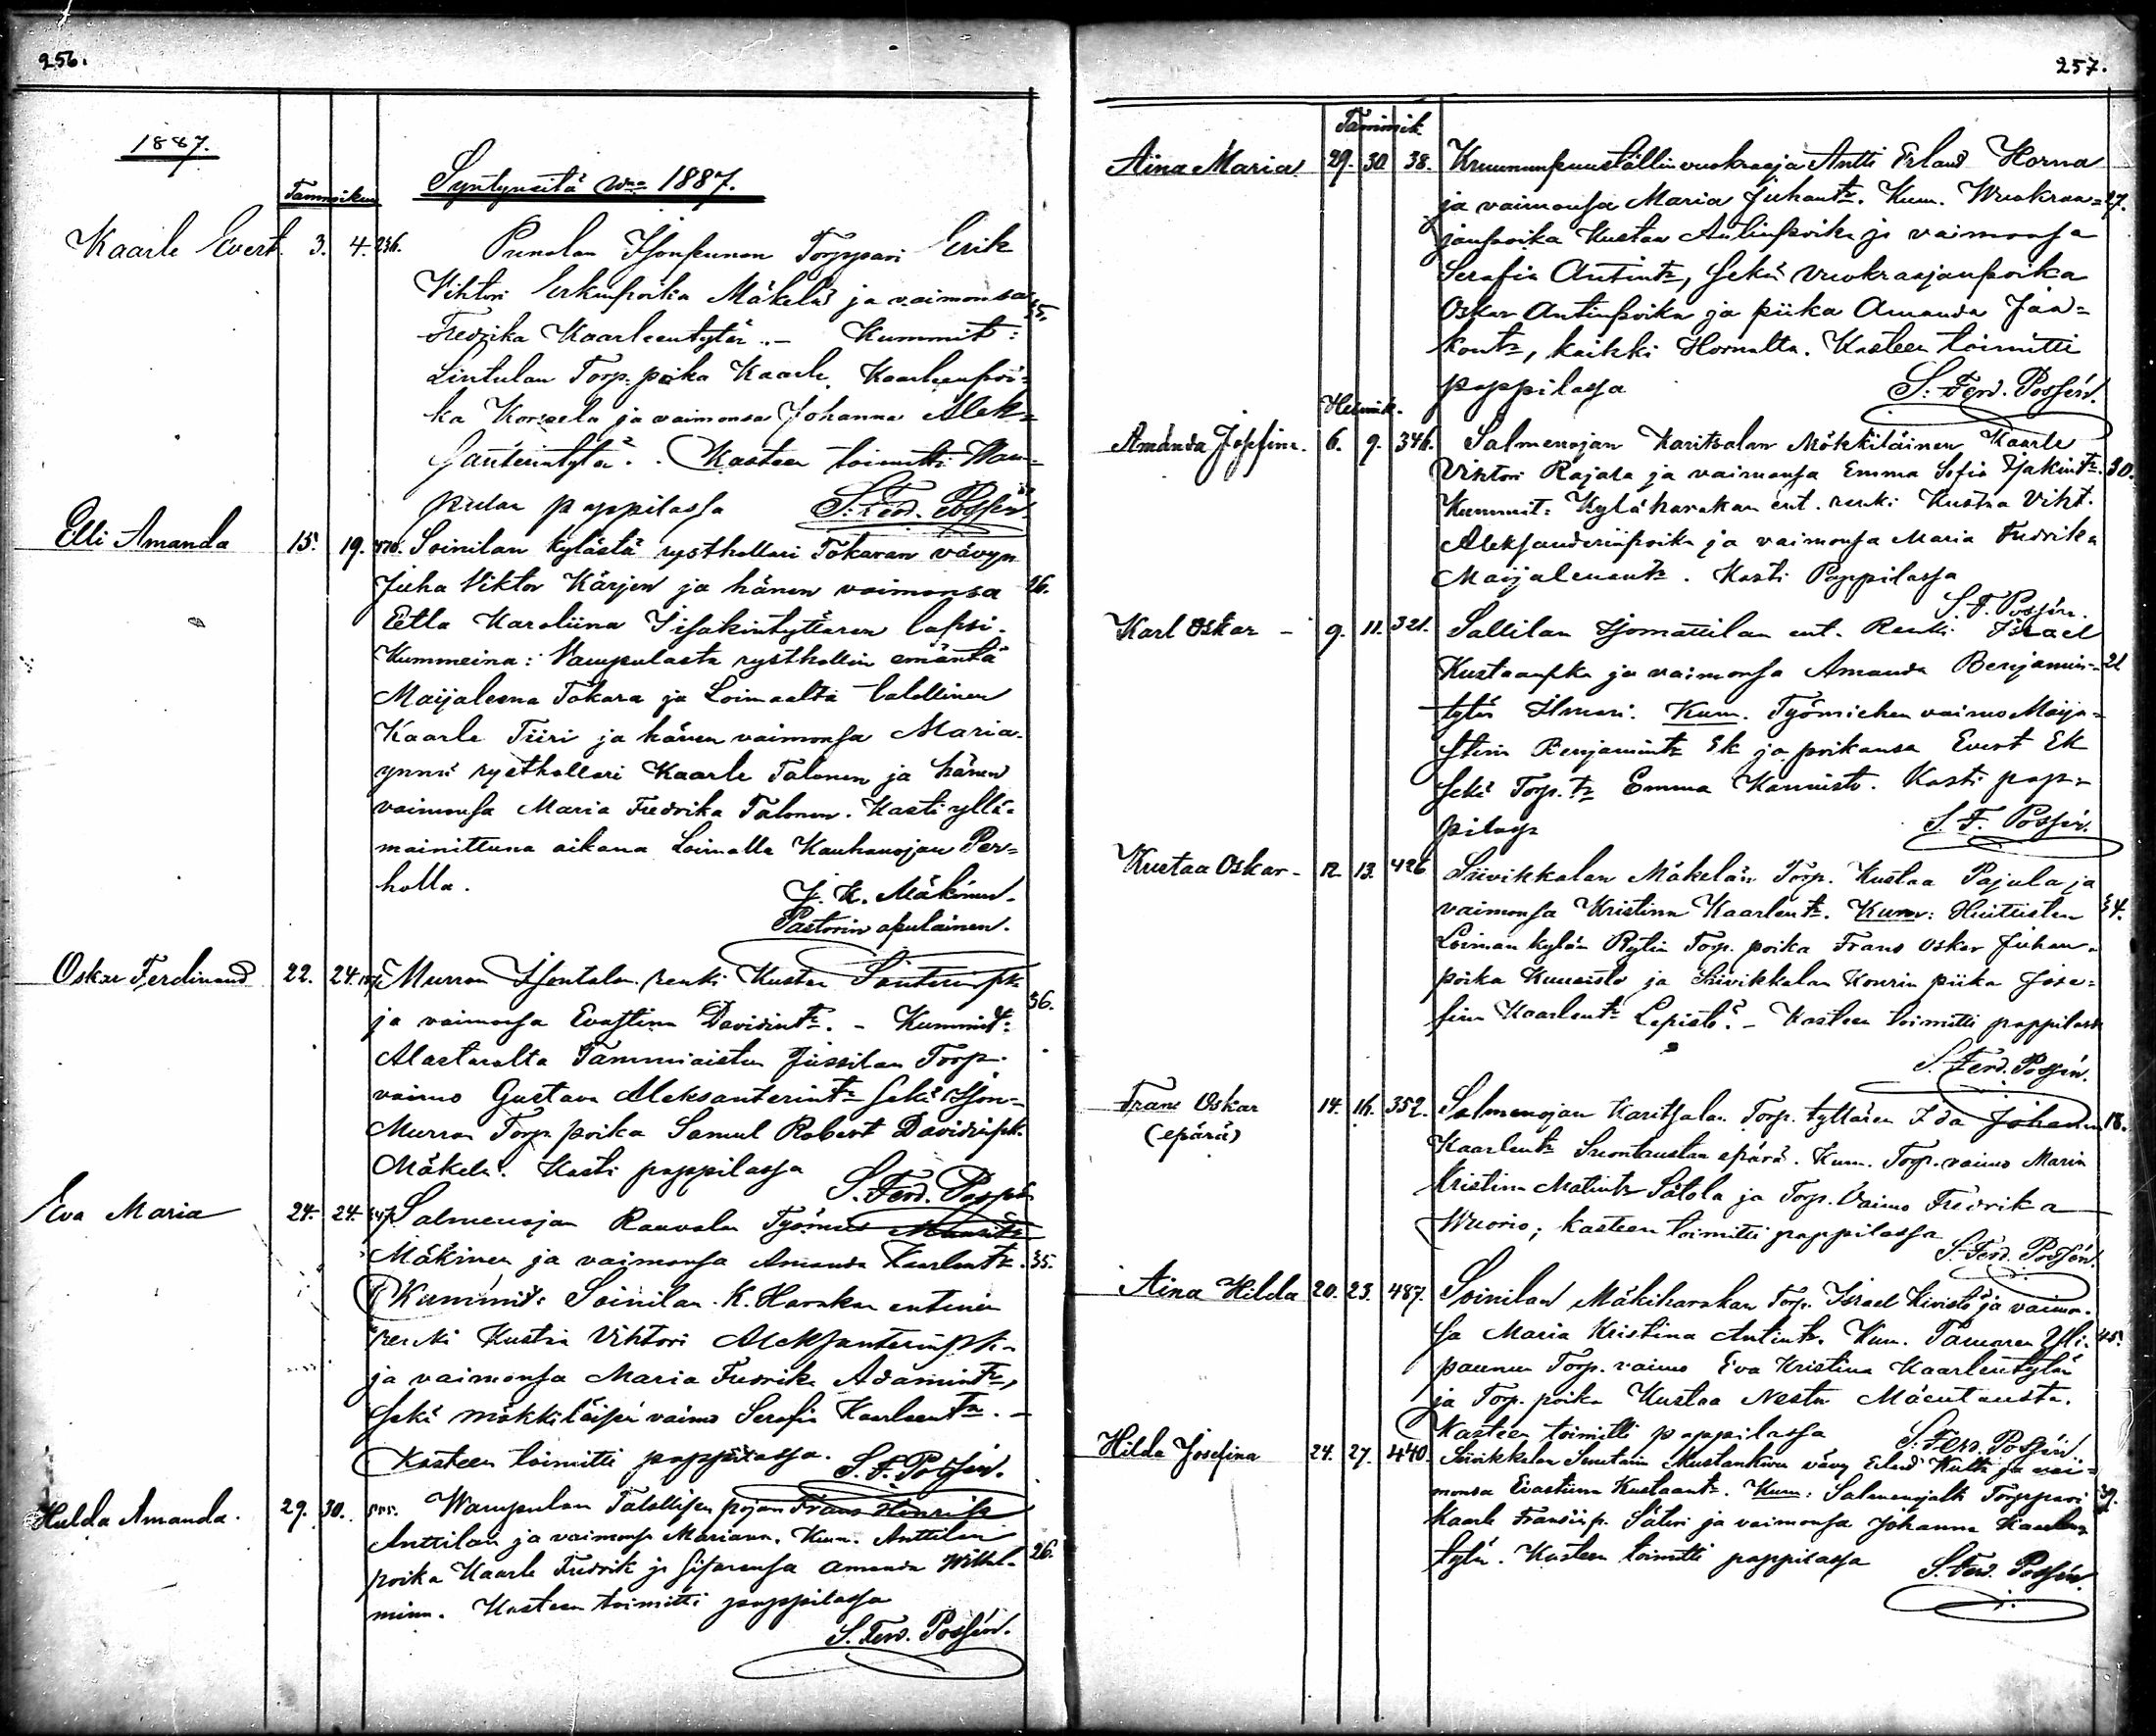 256.
1887.
Syntyneitä wna 1887.
Tammikuu
Kaarle Evert. 3. 4. 236. Punolan Isonpunon Torppari Erik
Vihtori Erkinpoika Mäkelä ja vaimonsa 35.
Fredrika Kaarleentytär. – Kummit:
Lintulan Torp. poika Kaarle Kaarleenpoi=
ka Korpela ja vaimonsa Johanna Alek=
santerintytär. Kasteen toimitti Wam=
pulan pappilassa S. Ferd. Possén.
Elli Amanda 15. 19. 470. Soinilan kylästä rysthollari Tokaran vävyn
Juha Viktor Kärjen ja hänen vaimonsa 26.
Eetla Karoliina Iisakintyttären lapsi.
Kummeina: Vampulasta rysthollin emäntä
Maijaleena Tokara ja Loimaalta talollinen
Kaarle Tiiri ja hänen vaimonsa Maria.
ynnä rysthollari Kaarle Talonen ja hänen
vaimonsa Maria Fredrika Talonen. Kasti yllä=
mainittuna aikana Loimalla Kauhanojan Per=
holla.
J. K. Mäkinen.
Pastorin apulainen.
Oskar Ferdinand 22. 24. Murron Isontalon renki Kustaa Santerinpk
ja vaimonsa Evastina Davidintr. – Kummit: 36.
Alastarolta Tammiaisten Jussilan Torp.
vaimo Gustava Aleksanterintr sekä Ison=
Murron Torp. poika Samul Robert Davidinpk.
Mäkelä. Kasti pappilassa S. Ferd. Possén
Eva Maria 24. 24. Salmenojan Rauvolan Työmies Manasse
Mäkinen ja vaimonsa Amanda Kaarlentr. 35.
Kummit: Soinilan K. Harakan entinen
renki Kustaa Vihtori Aleksanterinpk.
ja vaimonsa Maria Fredrika Adamintr,
sekä mökkiläisen vaimo Serafia Kaarleentr. –
Kasteen toimitti pappilassa. S. F. Possén.
Hulda Amanda. 29. 30. 555. Wampulan Talollisen pojan Frans Henrik
Anttilan ja vaimonsa Mariana. Kum. Anttilan
poika Kaarle Fredrik ja sisarensa Amanda Wilhel= 26.
mina. Kasteen toimitti pappilassa
S. Ferd. Possén.
257.
Tammik.
Aina Maria 29. 30. 38. Kruununpuuställin vuokraaja Antti Erland Horna
ja vaimonsa Maria Juhantr. Kum. Wuokraa= 27.
janpoika Kustaa Antinpoika ja vaimonsa
Serafia Antintr, sekä vuokraajanpoika
Oskar Antinpoika ja piika Amanda Jaa=
kontr, kaikki Hornalta. Kasteen toimitti
pappilassa S. Ferd. Possén.
Helmik.
Amanda Josefina. 6. 9. 346. Salmenojan Karitsalan Mökkiläinen Kaarle
Vihtori Rajala ja vaimonsa Emma Sofia Isakintr. 30.
Kummit: Kyläharakan ent. renki Kustaa Viht.
Aleksanderinpoika ja vaimonsa Maria Fredrika
Maijaleenantr. Kasti Pappilassa
S. F. Possén.
Karl Oskar – 9. 11. 321. Sallilan Isomattilan ent. Renki Israel
Kustaanpka ja vaimonsa Amanda Benjamin= 21
tytär Ilmari. Kum. Työmiehen vaimo Maija=
stina Benjamintr Ek ja poikansa Evert Ek
sekä Torp. tr Emma Kannisto. Kasti pap=
pilassa S. F. Possén.
Kustaa Oskar – 12. 13. 426 Siivikkalan Mäkelän Torp. Kustaa Pajula ja
vaimonsa Kristina Kaarlentr. Kum: Huittisten 34.
Loiman kylän Rytin Torp. poika Frans Oskar Juhan=
poika Kuusisto ja Siivikkalan Konrin piika Jose=
fina Kaarlentr Lepistö. – Kasteen toimitti pappilassa
S. Ferd. Possén.
Frans Oskar 14. 16. 352. Salmenojan Karitsalan Torp. tyttären Ida Johanna 18.
(epärä) Kaarlentr Suontaustan epärä. Kum. Torp. vaimo Maria
Kristina Matintr Sätola ja Torp. Vaimo Fredrika
Wuorio; kasteen toimitti pappilassa
S. Ferd. Possén.
Aina Hilda 20. 23. 487. Soinilan Mäkiharakan Torp. Israel Kivistö ja vaimon=
sa Maria Kristina Antintr. Kum. Tamaren Yli= 45.
paunun Torp. vaimo Eva Kristina Kaarlentytär
ja Torp. poika Kustaa Nestor Mäentausta.
Kasteen toimitti pappilassa S. Ferd. Possén
Hilda Josefina 24. 27. 440. Siivikkalan Mustankorvan vävy Erland Kultti ja vai=
monsa Evastiina Kustaantr. Kum: Salmenojalta Torppari 39.
Kaarle Fransinp. Säteri ja vaimonsa Johanna Kaarlen
tytär. Kasteen toimitti pappilassa S. Ferd. Possén.